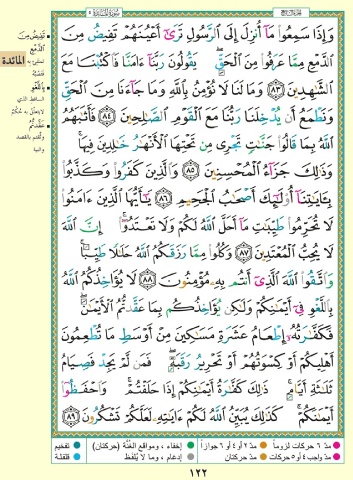 سورة المائدة ٥
الجزء السابع
وَإِذَا سَمِعُوا۟ مَآ أُنزِلَ إِلَى ٱلرَّسُولِ تَرَىٰٓ أَعْيُنَهُمْ تَفِيضُ مِنَ
ٱلدَّمْعِ مِمَّا عَرَفُوا۟ مِنَ ٱلْحَقِّ ۖ يَقُولُونَ رَبَّنَآ ءَامَنَّا فَٱكْتُبْنَا مَعَ
ٱلشَّٰهِدِينَ ٨٣ وَمَا لَنَا لَا نُؤْمِنُ بِٱللَّهِ وَمَا جَآءَنَا مِنَ ٱلْحَقِّ
وَنَطْمَعُ أَن يُدْخِلَنَا رَبُّنَا مَعَ ٱلْقَوْمِ ٱلصَّٰلِحِينَ ٨٤ فَأَثَٰبَهُمُ
ٱللَّهُ بِمَا قَالُوا۟ جَنَّٰتٍ تَجْرِى مِن تَحْتِهَا ٱلْأَنْهَٰرُ خَٰلِدِينَ فِيهَا ۚ
وَذَٰلِكَ جَزَآءُ ٱلْمُحْسِنِينَ ٨٥ وَٱلَّذِينَ كَفَرُوا۟ وَكَذَّبُوا۟
بِـَٔايَٰتِنَآ أُو۟لَٰٓئِكَ أَصْحَٰبُ ٱلْجَحِيمِ ٨٦ يَٰٓأَيُّهَا ٱلَّذِينَ ءَامَنُوا۟
لَا تُحَرِّمُوا۟ طَيِّبَٰتِ مَآ أَحَلَّ ٱللَّهُ لَكُمْ وَلَا تَعْتَدُوٓا۟ ۚ إِنَّ ٱللَّهَ
لَا يُحِبُّ ٱلْمُعْتَدِينَ ٨٧ وَكُلُوا۟ مِمَّا رَزَقَكُمُ ٱللَّهُ حَلَٰلًا طَيِّبًا ۚ
وَٱتَّقُوا۟ ٱللَّهَ ٱلَّذِىٓ أَنتُم بِهِۦ مُؤْمِنُونَ ٨٨ لَا يُؤَاخِذُكُمُ ٱللَّهُ
بِٱللَّغْوِ فِىٓ أَيْمَٰنِكُمْ وَلَٰكِن يُؤَاخِذُكُم بِمَا عَقَّدتُّمُ ٱلْأَيْمَٰنَ ۖ
فَكَفَّٰرَتُهُۥٓ إِطْعَامُ عَشَرَةِ مَسَٰكِينَ مِنْ أَوْسَطِ مَا تُطْعِمُونَ
أَهْلِيكُمْ أَوْ كِسْوَتُهُمْ أَوْ تَحْرِيرُ رَقَبَةٍ ۖ فَمَن لَّمْ يَجِدْ فَصِيَامُ
ثَلَٰثَةِ أَيَّامٍ ۚ ذَٰلِكَ كَفَّٰرَةُ أَيْمَٰنِكُمْ إِذَا حَلَفْتُمْ ۚ وَٱحْفَظُوٓا۟
أَيْمَٰنَكُمْ ۚ كَذَٰلِكَ يُبَيِّنُ ٱللَّهُ لَكُمْ ءَايَٰتِهِۦ لَعَلَّكُمْ تَشْكُرُونَ ٨٩
تفيض من
الدمع
تمتلئ به
فتصبه
باللغو
الساقط الذي
لا يتعلق به حكم
عقدتم
وثقتم بالقصد
والنية
المائدة
مد ٦ حركات لزوماً
مد ٢ أو ٤ أو ٦ جوازاً
إخفاء، ومواقع الغنة (حركتان)
تفخيم
مد واجب ٤ أو ٥ حركات
مد حركتان
إدغام، وما لا يلفظ
قلقلة
١٢٢